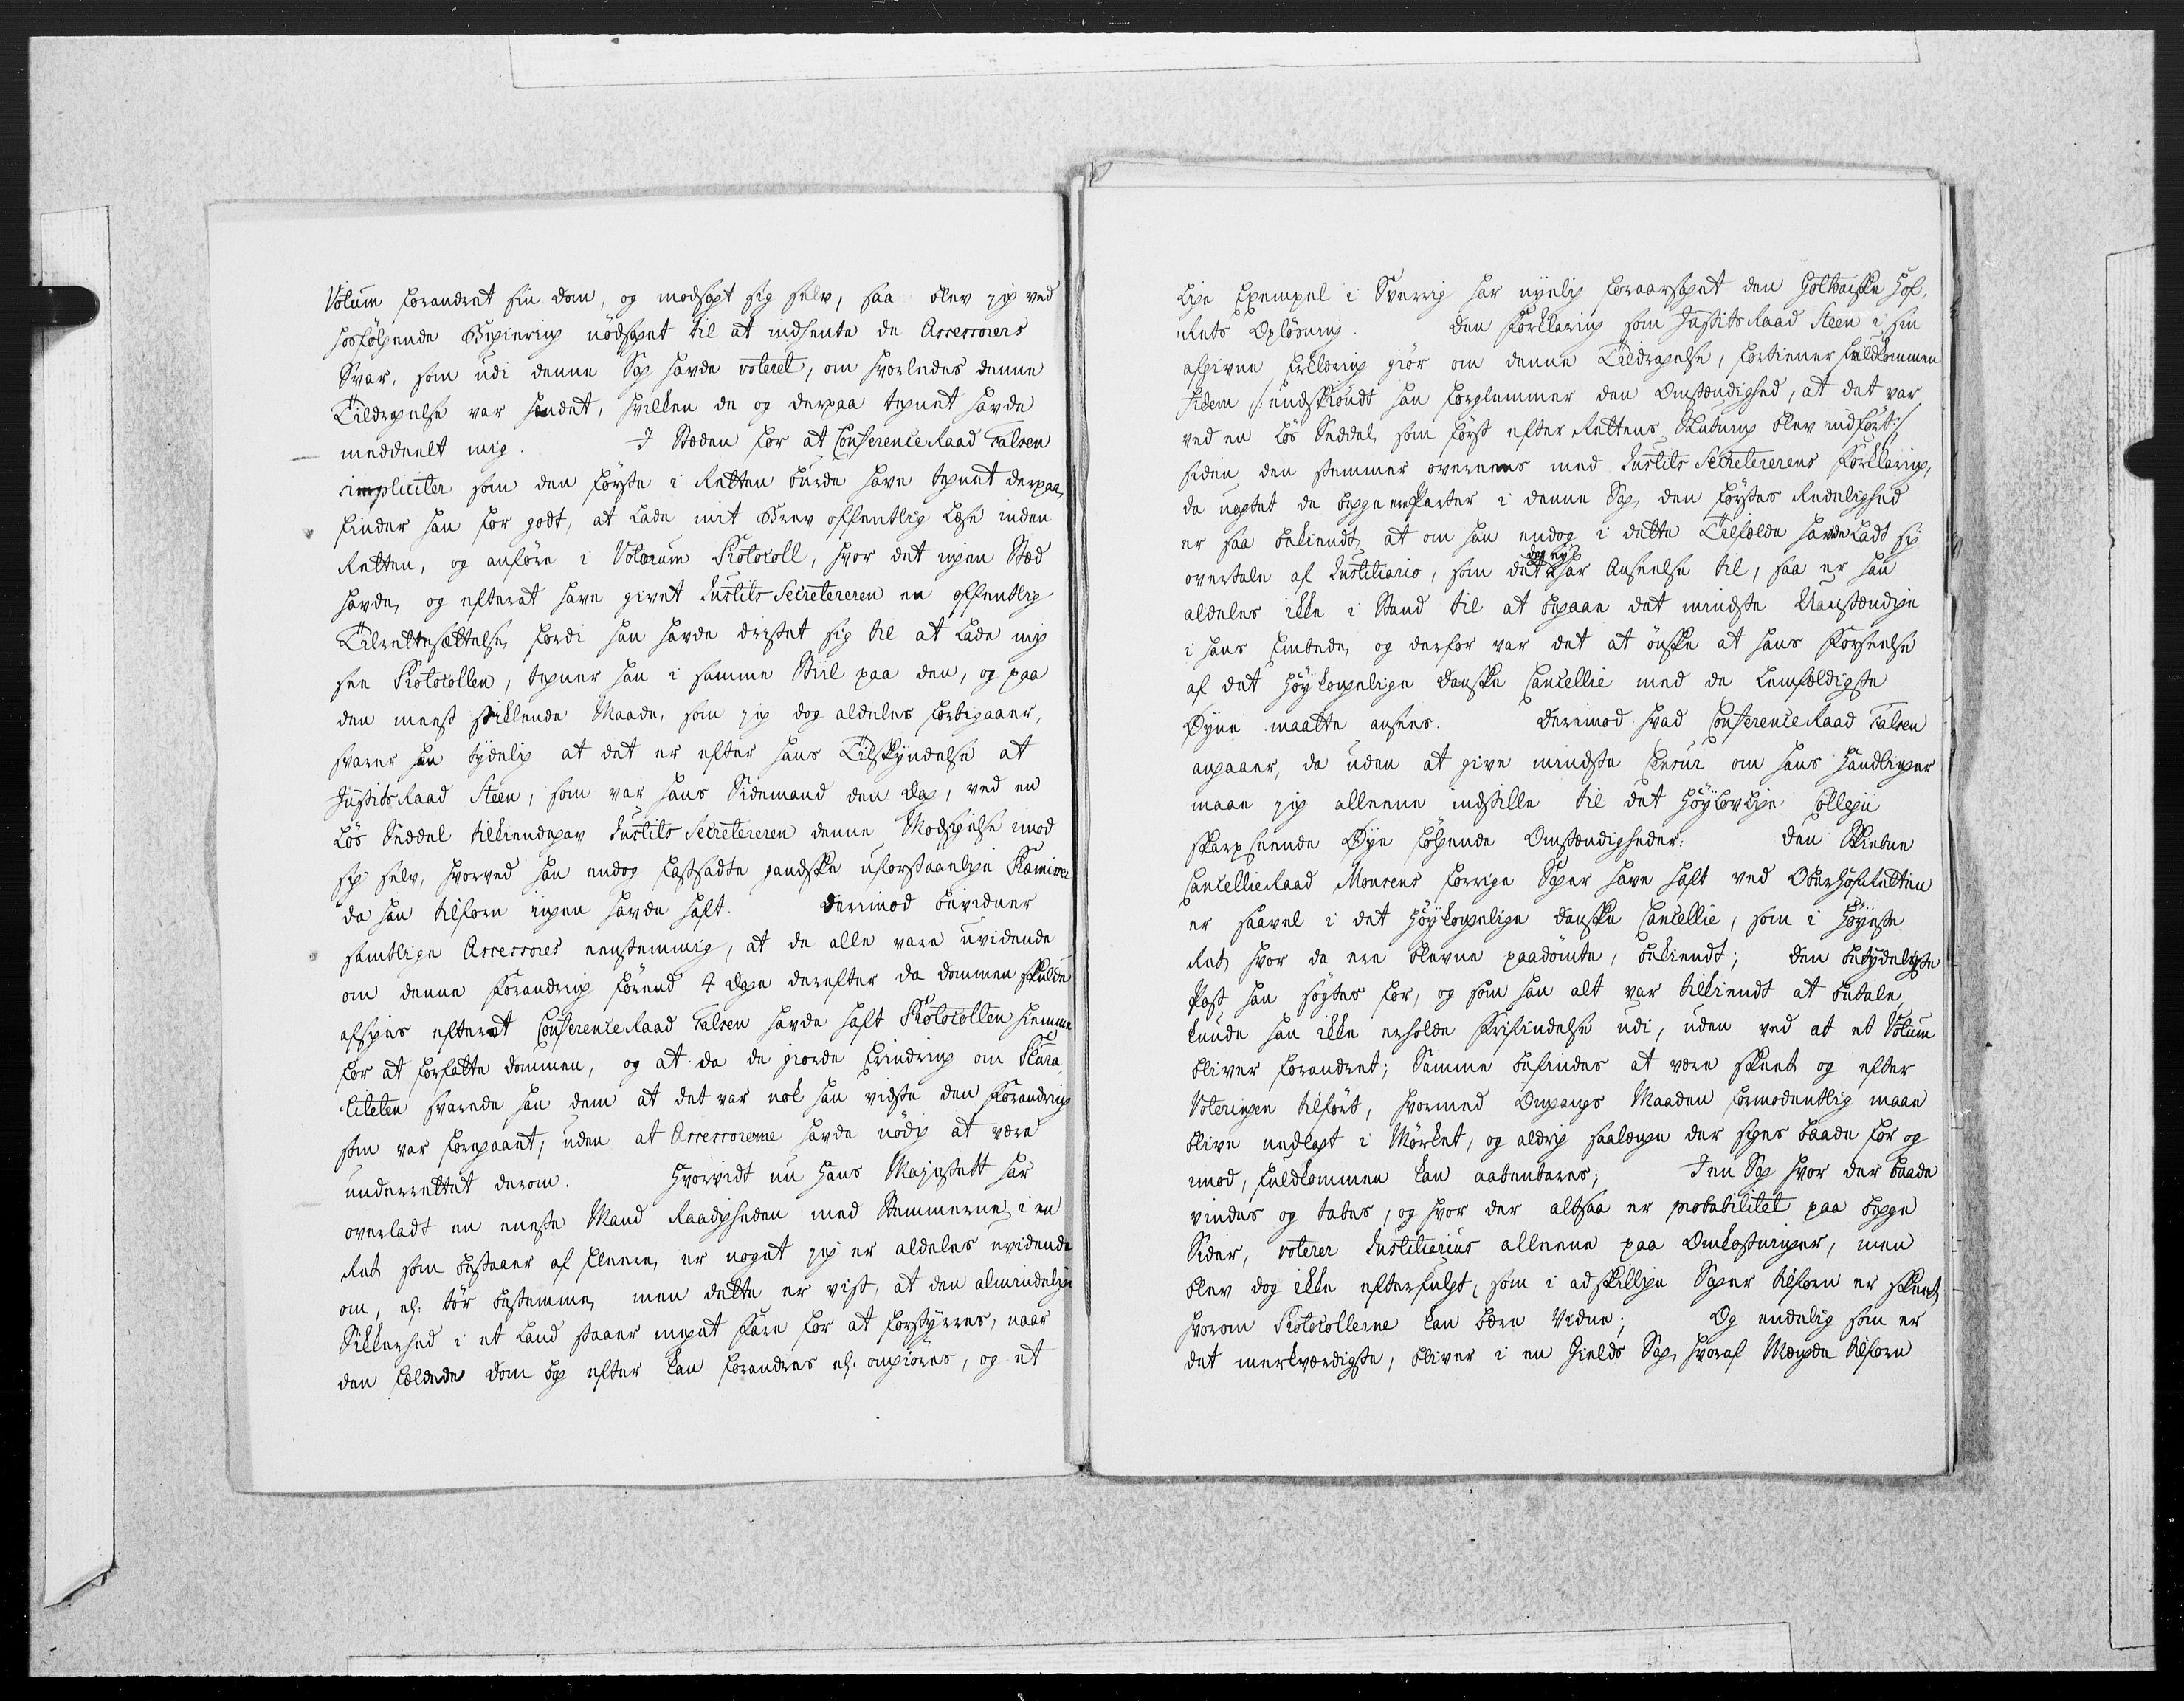 Votum forandret sin dom, og modsagt sig selv, saa blev jeg ved
hosfölgende Skrivning nödsaget til at indhente de Assessorers
Svar, som udi denne Sag havde voteret, om hvorledes denne
Tildragelse var hendet, hvilken de og derpaa tegnet havde
meddeelt mig. I Steden for at Conference Raad Falsen
simpliciter som den förste i Retten burde have tegnet derpaa,
finder han for godt, at lade mit Brev offentlig læse inden
Retten, og anföre i Votorum Protocoll, hvor det ingen Sted
havde, og efterat have givet Justits Secretereren en offentlig
Tilrettesættelse, fordi han havde dristet sig til at lade mig
see Protocollen, tegner han i samme Stiil paa den, og paa
den meest stiklende Maade, som jeg dog aldeles forbigaaer,
svarer han tydelig at det er efter hans Tilskyndelse at
Justits Raad Steen, som var hans Sidemand den Dag, ved en
lös Seddel tilkiendegav Justits Secretereren denne Modsigelse imod
sig selv, hvorved han endog fastsadte gandske uforstaaelige Præmisser
da han tilforn ingen havde haft. Derimod bevidner
samtlige Assessores eenstemmig, at de alle vare uvidende
om denne Forandring förend 4 Dage derefter da Dommen skulde
afsiges efterat Conference Raad Falsen havde haft Protocollen hiemme
for at forfatte Dommen, og at da de giorde Erindring om Plura,
liteten svarede han dem at det var nok han vidste den Forandring
som var foregaaet, uden at Assessorerne havde nödig at være
underrettet derom. Hvorvidt nu Hans Majestett har
overladt en eneste Mand Raadigheden med Stemmerne i en
Ret som bestaaer af fleere, er noget jeg er aldeles uvidende
om, ej: tör bestemme, men dette er vist, at den almindelige
Sikkerhed i et Land staaer meget Fare for at forstyrres, naar
den fældede Dom bag efter kan forandres ej: omgiöres, og et
lige Exempel i Sverrig har nyelig foraarsaget den Gothiske Hof,
Rets Oplösning. Den Forklaring som Justits Raad Steen i sin
afgivne Erklæring giör om denne Tildragelse, fortiener fuldkommen
Fidem /: endskiöndt han forglemmer den Omstændighed, at det var
ved en lös Seddel som först efter Rettens Slutning blev indfört:/
siden den stemmer overeens med Justits Secretererens Forklaring,
da uagtet de begge ere Parter i denne Sag, den förstes Redelighed
er saa bekiendt, at om han endog i dette Tilfælde havde ladt sig
overtale af Justitiario, som det har Anseelse til, saa er han
aldeles ikke i Stand til at begaae det mindste Uanstændige
i hans Embede, og derfor var det at önske at hans Forseelse
af det Höykongelige danske Cancellie med de lemfældigste
Øyne maatte ansees. Derimod hvad Conference Raad Falsen
angaaer, da uden at give mindste Censur om hans Handlinger
maae jeg alleene indstille til det Höylovlige Collegii
skarpseende Øye fölgende Omstændigheder: Den Skiebne
Cancellie Raad Monsens forrige Sager have haft ved Oberhofretten
er saavel i det Höykongelige danske Cancellie, som i Höyeste
Ret, hvor de ere blevne paadömte, bekiendt; den betydeligste
Post han sögtes for, og som han alt var tilkiendt at betale,
kunde han ikke erholde Frifindelse udi, uden ved at et Votum
bliver forandret; Samme befindes at være skeet og efter
Voteringen tilfört, hvormed Omgangs Maaden formodentlig maae
blive nedlagt i Mörket, og aldrig saalænge der siges baade for og
imod, fuldkommen kan aabenbares; I en Sag hvor der baade
vindes og tabes, og hvor der altsaa er probabilitet paa begge
Sider, voterer Justitiarius alleene paa Omkostninger, men
blev dog ikke efterfulgt, som i adskillige Sager tilforn er skeet,
hvorom Protocollerne kan bære Vidne; Og endelig som er
det merkværdigste, bliver i en Gields Sag, hvoraf Mængde tilforn